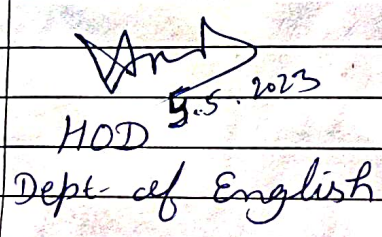 5.5.2023
HOD
Dept. of English